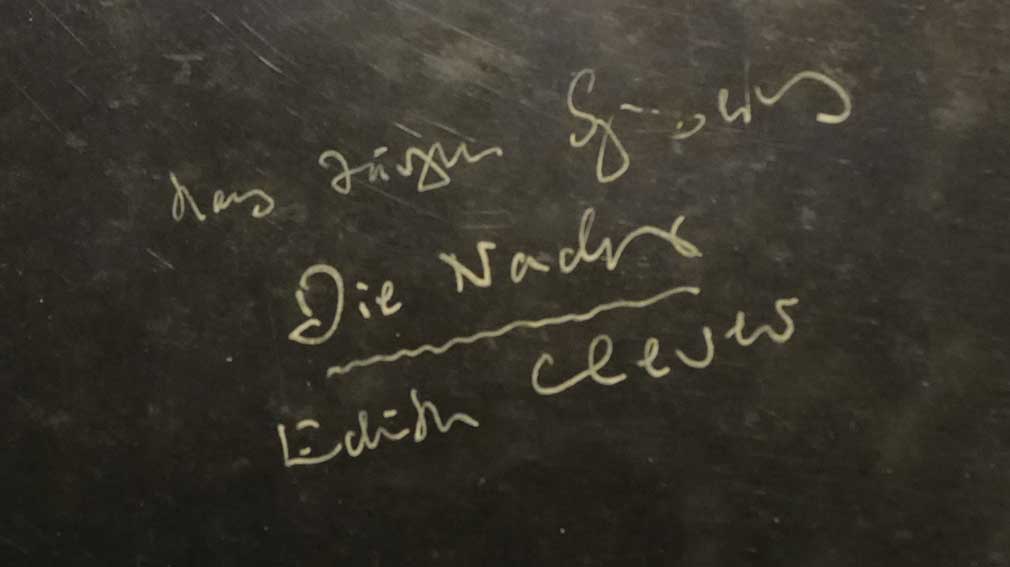 Hans Jürgen Syberberg
Die Nacht
Edith Clever